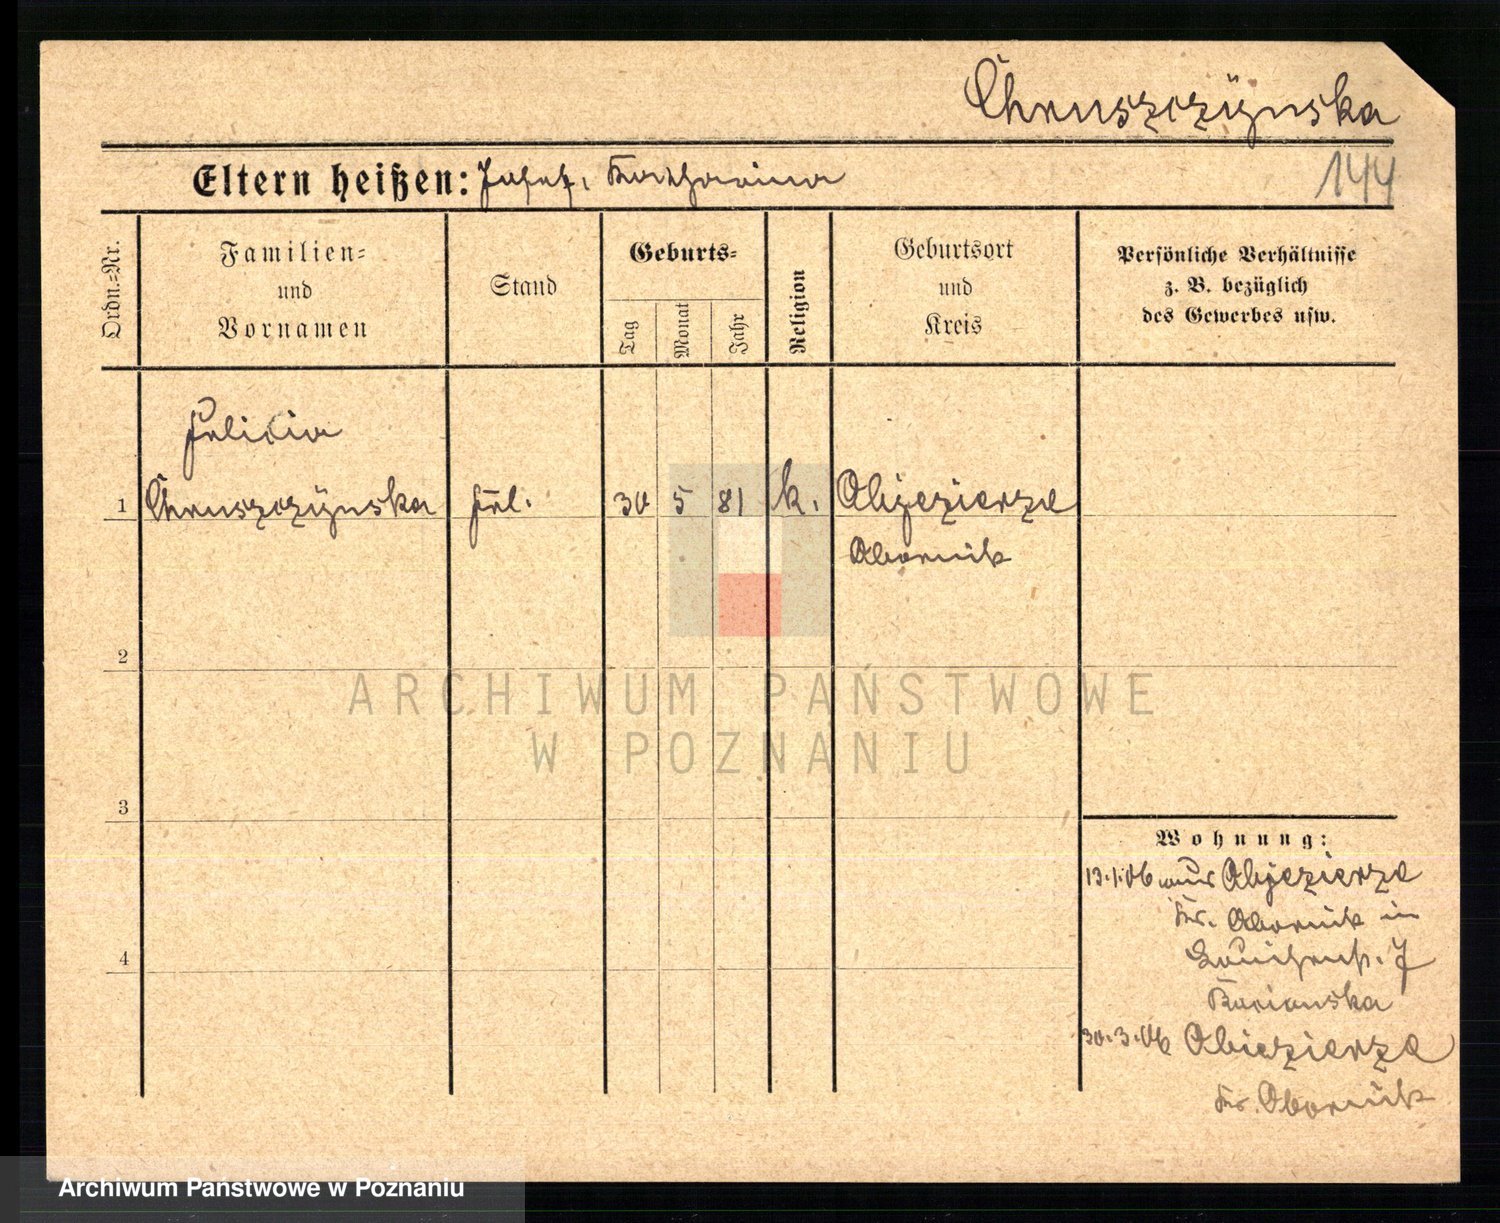 Chruszczÿnska
Eltern heißen: Josef, Katharina
144
Ordn.=Nr.
Familien=
und
Vornamen
Stand
Geburts=
Tag
Monat
Jahr
Religion
Geburtsort
und
Kreis
Persönliche Verhältnisse
z. B. bezüglich
des Gewerbes usw.
Felicia
1 Chruszczÿnska Frl. 30 5 81 k. Objezierze
Obornik
2
ARCHIWUM PAŃSTWOWE
W POZNANIU
3
Wohnung:
13.1.06 aus Objezierze
Kr. Obornik in
7
4
30.3.06 Obiezierze
Kr. Obornik
Archiwum Państwowe w Poznaniu